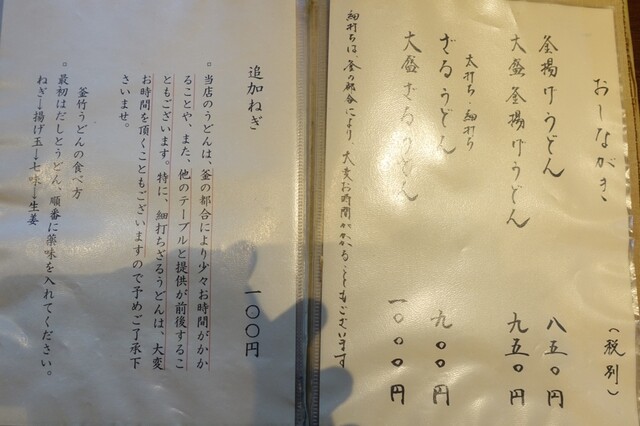 おしながき
（税別）
釜揚げうどん 八五〇円
大盛釜揚げうどん 九五〇円
太打ち・細打ち
ざるうどん 九〇〇円
大盛ざるうどん 一〇〇〇円
細打ちは、釜の都合により、大変お時間がかかることもございます
追加ねぎ 一〇〇円
。当店のうどんは、釜の都合により少々お時間がかか
ることや、また、他のテーブルと提供が前後するこ
ともございます。特に、細打ちざるうどんは、大変
お時間を頂くこともございますので予めご了承下
さいませ。
釜竹うどんの食べ方
。最初はだしとうどん、順番に薬味を入れてください。
ねぎ→揚げ玉→七味→生姜